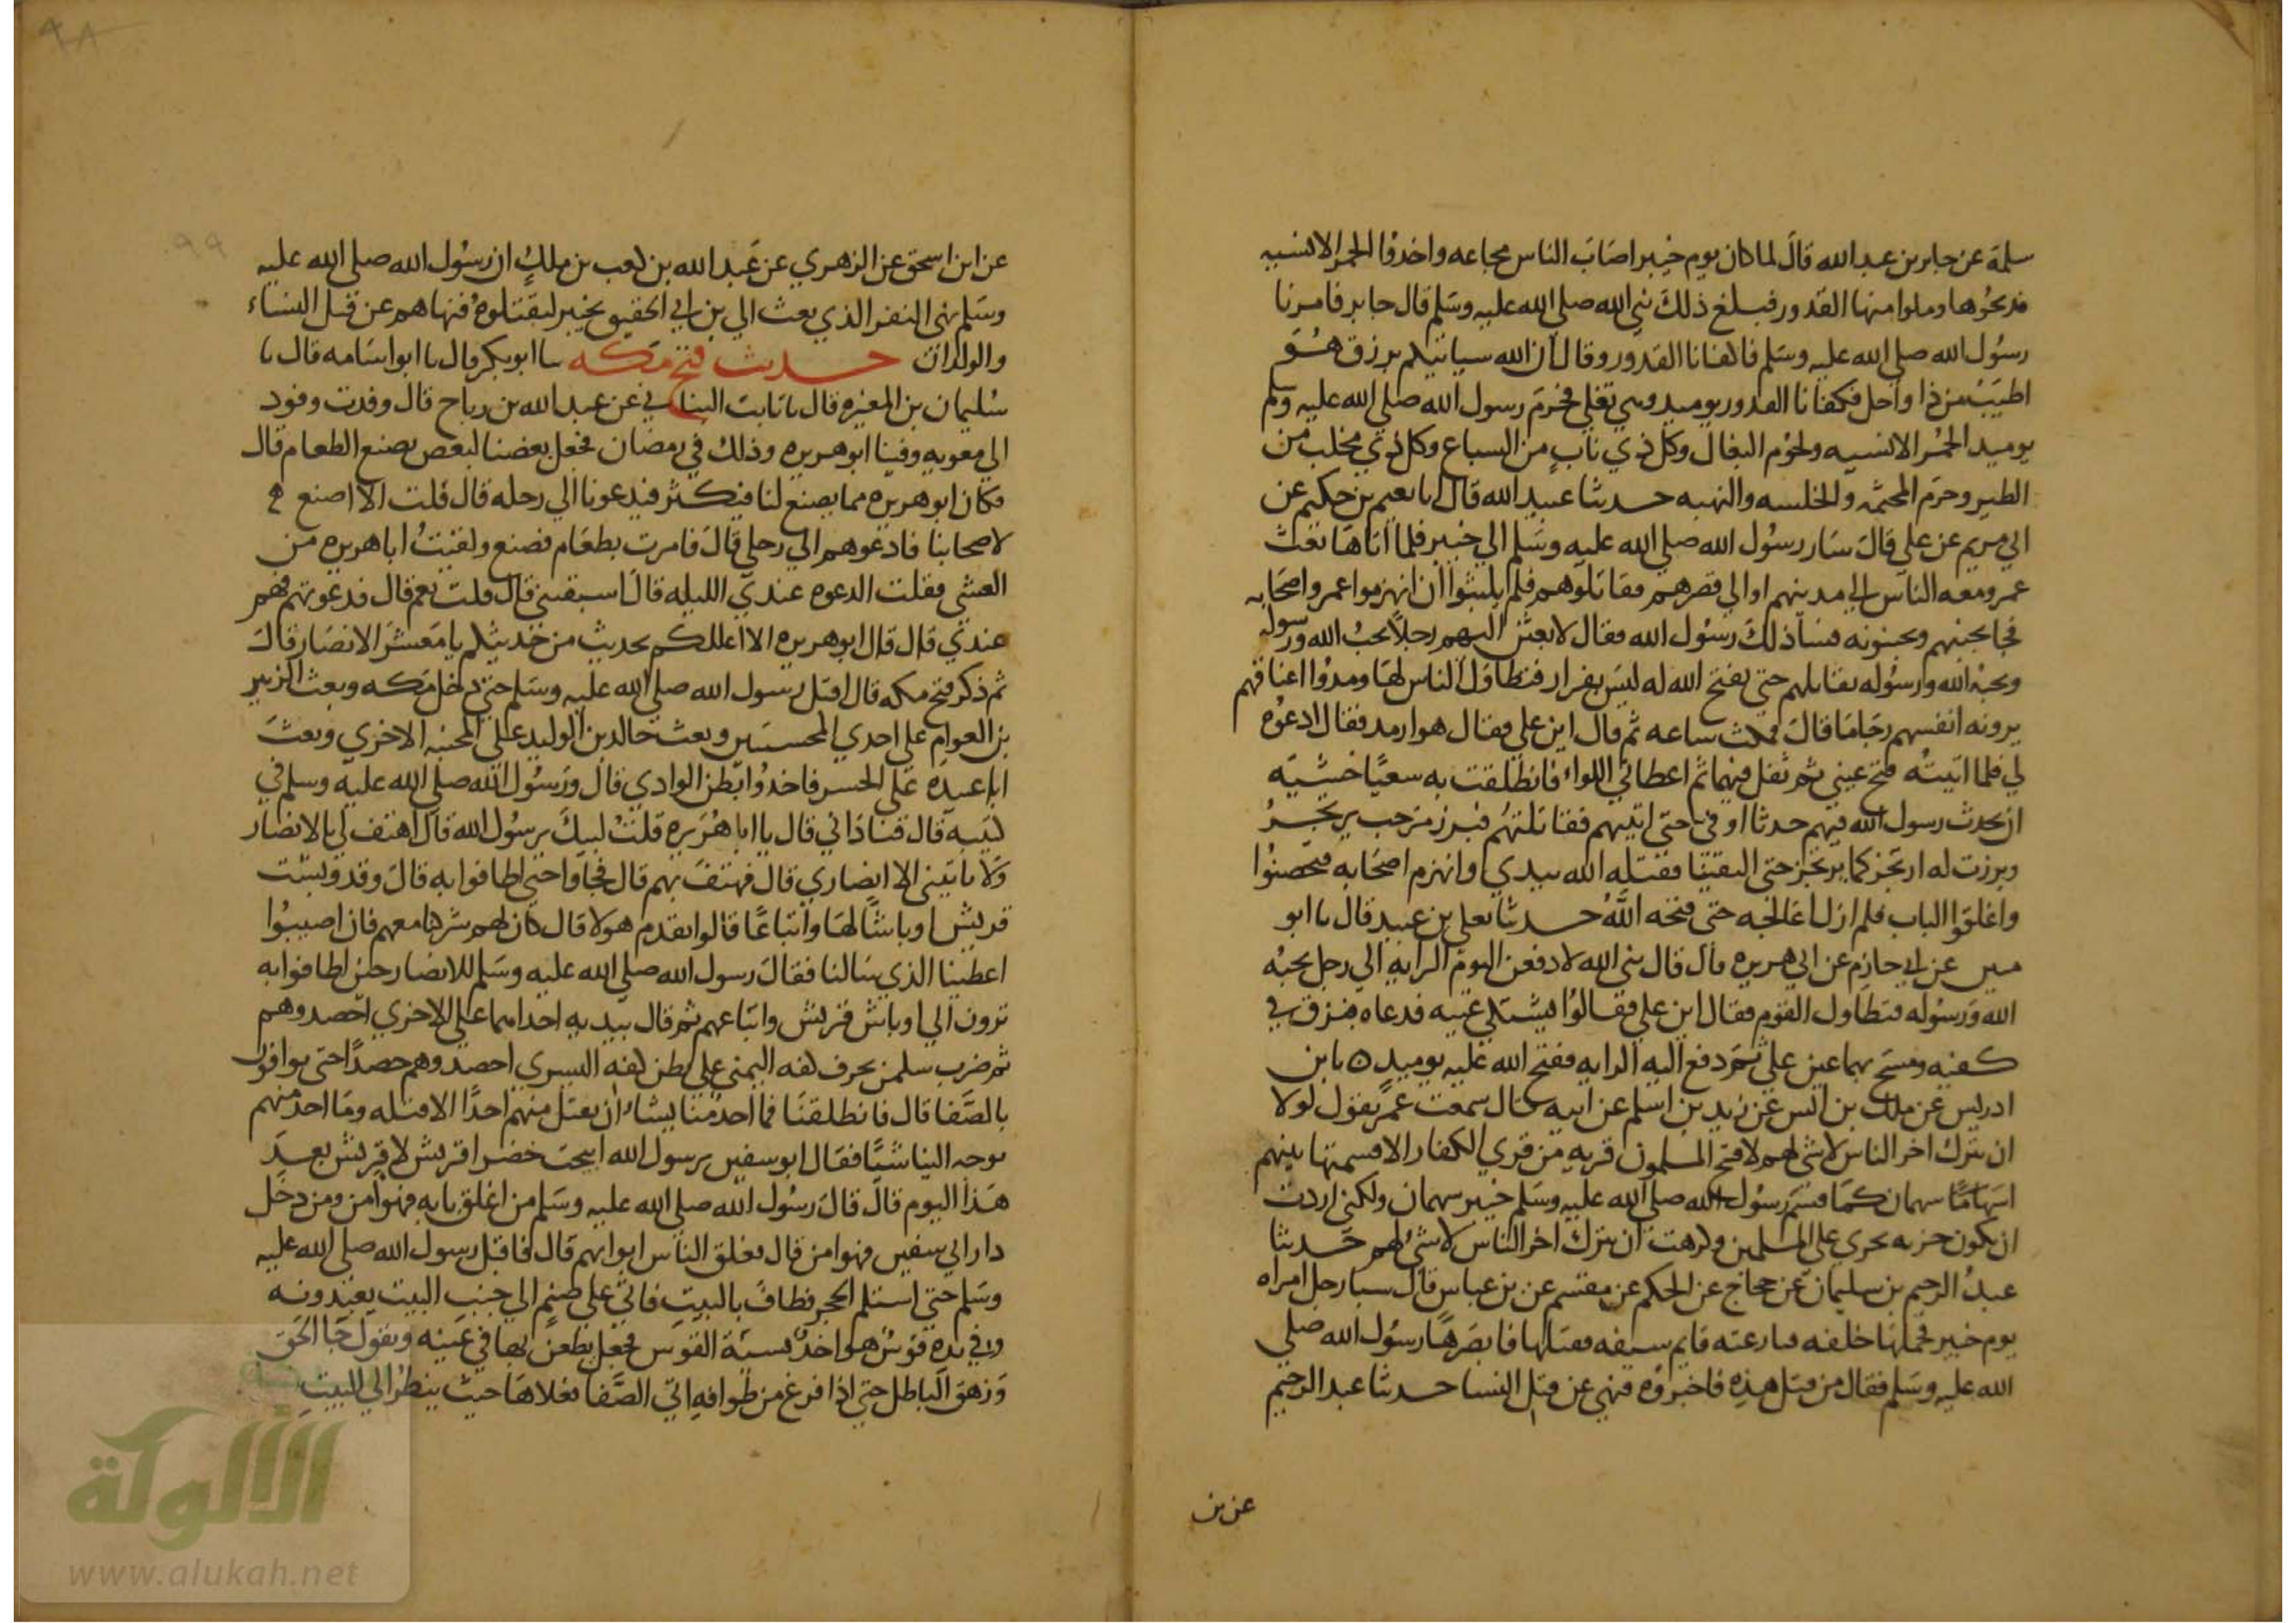 سلمة عن جابر بن عبد الله قال لما كان يوم خيبر اصاب الناس مجاعه واخذوا الحمر الانسيه
فذبحوها وملوا منها القدور فبلغ ذلك نبي الله صلى الله عليه وسلم قال جابر فامرنا
رسول الله صلى الله عليه وسلم فاكفانا القدور وقال ان الله سياتيكم برزق هو
اطيب من ذا واحل فكفانا القدور يوميد وهي تغلي فحرم رسول الله صلى الله عليه وسلم
يوميد الحمر الانسيه ولحوم البغال وكل ذي ناب من السباع وكل ذي مخلب من
الطير وحرم المجثمه والخلسه والنهبه حدثنا عبيد الله قال نا نعيم بن حكيم عن
ابي مريم عن علي قال سار رسول الله صلى الله عليه وسلم الى خيبر فلما اتاها بعث
عمر ومعه الناس الى مدينهم او الى قصرهم فقاتلوهم فلم يلبثوا ان انهزموا عمر واصحابه
فجا يجبنهم ويجبنونه فسا ذلك رسول الله فقال لابعثن اليهم رجلا يحب الله ورسوله
ويحبه الله ورسوله يقاتلهم حتى يفتح الله له ليس بفرار فتطاول الناس لها ومدوا اعناقهم
يرونه انفسهم رجا ما قال فمكث ساعه ثم قال اين علي فقال هو ارمد فقال ادعوه
لي فلما اتيته فتح عيني ثم تفل فيهما ثم اعطاني اللواء فانطلقت به سعيا خشيه
ان يحدث رسول الله فيهم حدثا او في حتى اتيهم فقاتلتهم فبرز مرحب يرتجز
وبرزت له ارتجز كما يرتجز حتى التقينا فقتله الله بيدي وانهزم اصحابه فتحصنوا
واغلقوا الباب فلم ازل اعالجه حتى فتحه الله حدثنا يعلى بن عبيد قال نا ابو
منين عن ابي حازم عن ابي هريره قال قال نبي الله لادفعن اليوم الرايه الى رجل يحبه
الله ورسوله فتطاول القوم فقال اين علي فقالوا يشتكي عينه فدعاه فبزق في
كفيه ومسح بهما عين علي ثم دفع اليه الرايه ففتح الله عليه يوميد ٥ نا بن
ادريس عن ملك بن انس عن زيد بن اسلم عن ابيه قال سمعت عمر يقول لولا
ان يترك اخر الناس لا شي لهم لا فتح المسلمون قريه من قرى الكفار الا قسمتها بينهم
اسهاما سهمان كما قسم رسول الله صلى الله عليه وسلم خيبر سهمان ولكني اردت
ان يكون جزيه تجري على المسلمين وكرهت ان يترك اخر الناس لا شي لهم حدثنا
عبد الرحيم بن سليمان عن حجاج عن الحكم عن مقسم عن بن عباس قال سبا رجل امراه
يوم خيبر فحملها خلفه فنازعته قايم سيفه فقتلها فابصرها رسول الله صلى
الله عليه وسلم فقال من قتل هذه فاخبروه فنهى عن قتل النسا حدثنا عبد الرحيم
عن بن
٩٨
٩٩
عن ابن اسحق عن الزهري عن عبد الله بن كعب بن ملك ان رسول الله صلى الله عليه
وسلم نهى النفر الذي بعث الى بن ابي الحقيق بخيبر ليقتلوه فنهاهم عن قتل النساء
والولدان حديث فتح مكه نا ابو بكر قال نا ابو اسامه قال نا
سليمان بن المغيره قال نا ثابت البناني عن عبد الله بن رباح قال وفدت وفود
الى معويه وفينا ابو هريره وذلك في رمضان فجعل بعضنا لبعض يصنع الطعام قال
فكان ابو هريره مما يصنع لنا فيكثر فيدعونا الى رحله قال قلت الا اصنع
لاصحابنا فادعوهم الى رحلي قال فامرت بطعام فصنع ولقيت ابا هريره من
العشي فقلت الدعوه عندي الليله قال اسبقتني قال قلت نعم قال فدعوتهم فهم
عندي قال قال ابو هريره الا اعللكم بحديث من حديثكم يا معشر الانصار قال
ثم ذكر فتح مكه قال اقبل رسول الله صلى الله عليه وسلم حتى دخل مكه وبعث الزبير
بن العوام على احدى المجنبتين وبعث خالد بن الوليد على المجنبه الاخرى وبعث
ابا عبيده على الحسر فاخذوا بطن الوادي قال ورسول الله صلى الله عليه وسلم في
كتيبه قال فناداني قال يا ابا هريره قلت لبيك يرسول الله قال اهتف لي بالانصار
ولا ياتيني الا انصاري قال فهتف بهم قال فجاوا حتى اطافوا به قال وقد وبشت
قريش اوباشا لها واتباعا قالوا نقدم هولا قال كان لهم شي كنا معهم فان اصيبوا
اعطينا الذي سالنا فقال رسول الله صلى الله عليه وسلم للانصار حين اطافوا به
ترون الى اوباش قريش واتباعهم ثم قال بيديه احداهما على الاخرى احصدوهم
ثم ضرب سليمن بحرف كفه اليمنى على بطن كفه اليسرى احصدوهم حصدا حتى توافون
بالصفا قال فانطلقنا فما احد منا يشاء ان يقتل منهم احدا الا قتله وما احد منهم
يوجه الينا شيا فقال ابو سفين يرسول الله ابيحت خضرا قريش لا قريش بعد
هذا اليوم قال قال رسول الله صلى الله عليه وسلم من اغلق بابه فهو امن ومن دخل
دار ابي سفين فهو امن قال فغلق الناس ابوابهم قال فاقبل رسول الله صلى الله عليه
وسلم حتى استلم الحجر وطاف بالبيت فاتى على صنم الى جنب البيت يعبدونه
وفي يده قوس هو اخذ بسية القوس فجعل يطعن بها في عينه ويقول جا الحق
وزهق الباطل حتى اذا فرغ من طوافه اتى الصفا فعلاها حيث ينظر الى البيت
الألوكة
www.alukah.net